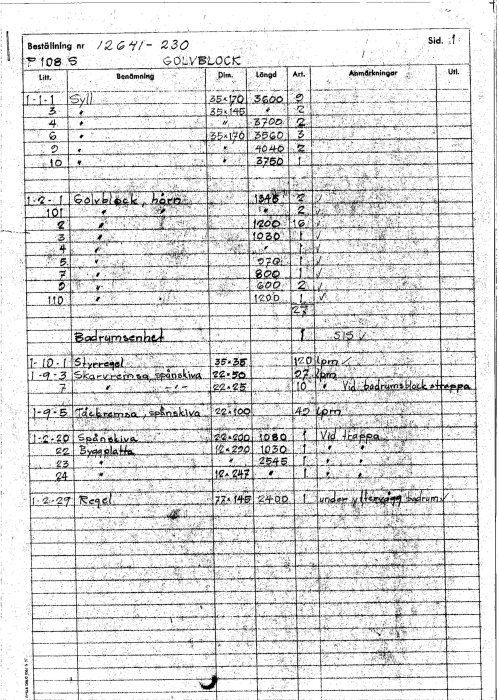 Beställning nr 12641-230 Sid. 1
P 108 S GOLVBLOCK
Litt. Benämning Dim. Längd Art. Anmärkningar Utl.
1-1-1 Syll 35×170 3600 9
3 " 35×145 " 2
4 " " 3700 2
6 " 35×170 3560 3
9 " " 4040 2
10 " " 3750 1
1-2-1 Golvblock, hörn 1345 2 ✓
101 " " " 2 ✓
2 " 1200 16 ✓
3 " 1030 1 ✓
4 " " 1 ✓
5 " 970 1 ✓
7 " 800 1 ✓
9 " 600 2 ✓
110 " " 1200 1 ✓
27
Badrumsenhet 1 SIS ✓
1-10-1 Styrregel 35×35 120 lpm ✓
1-9-3 Skarvremsa, spånskiva 22×50 97 lpm
7 " -"- 22×25 10 " Vid badrumsblock + trappa
1-9-5 Tätremsa, spånskiva 22×100 49 lpm
1-2-20 Spånskiva 22×200 1080 1 Vid trappa
22 Byggplatta 12×290 1030 1 " "
23 " " 2545 1 " "
24 12×247 " 1 " "
1-2-29 Regel 77×145 2400 1 under yttervägg badrum ✓